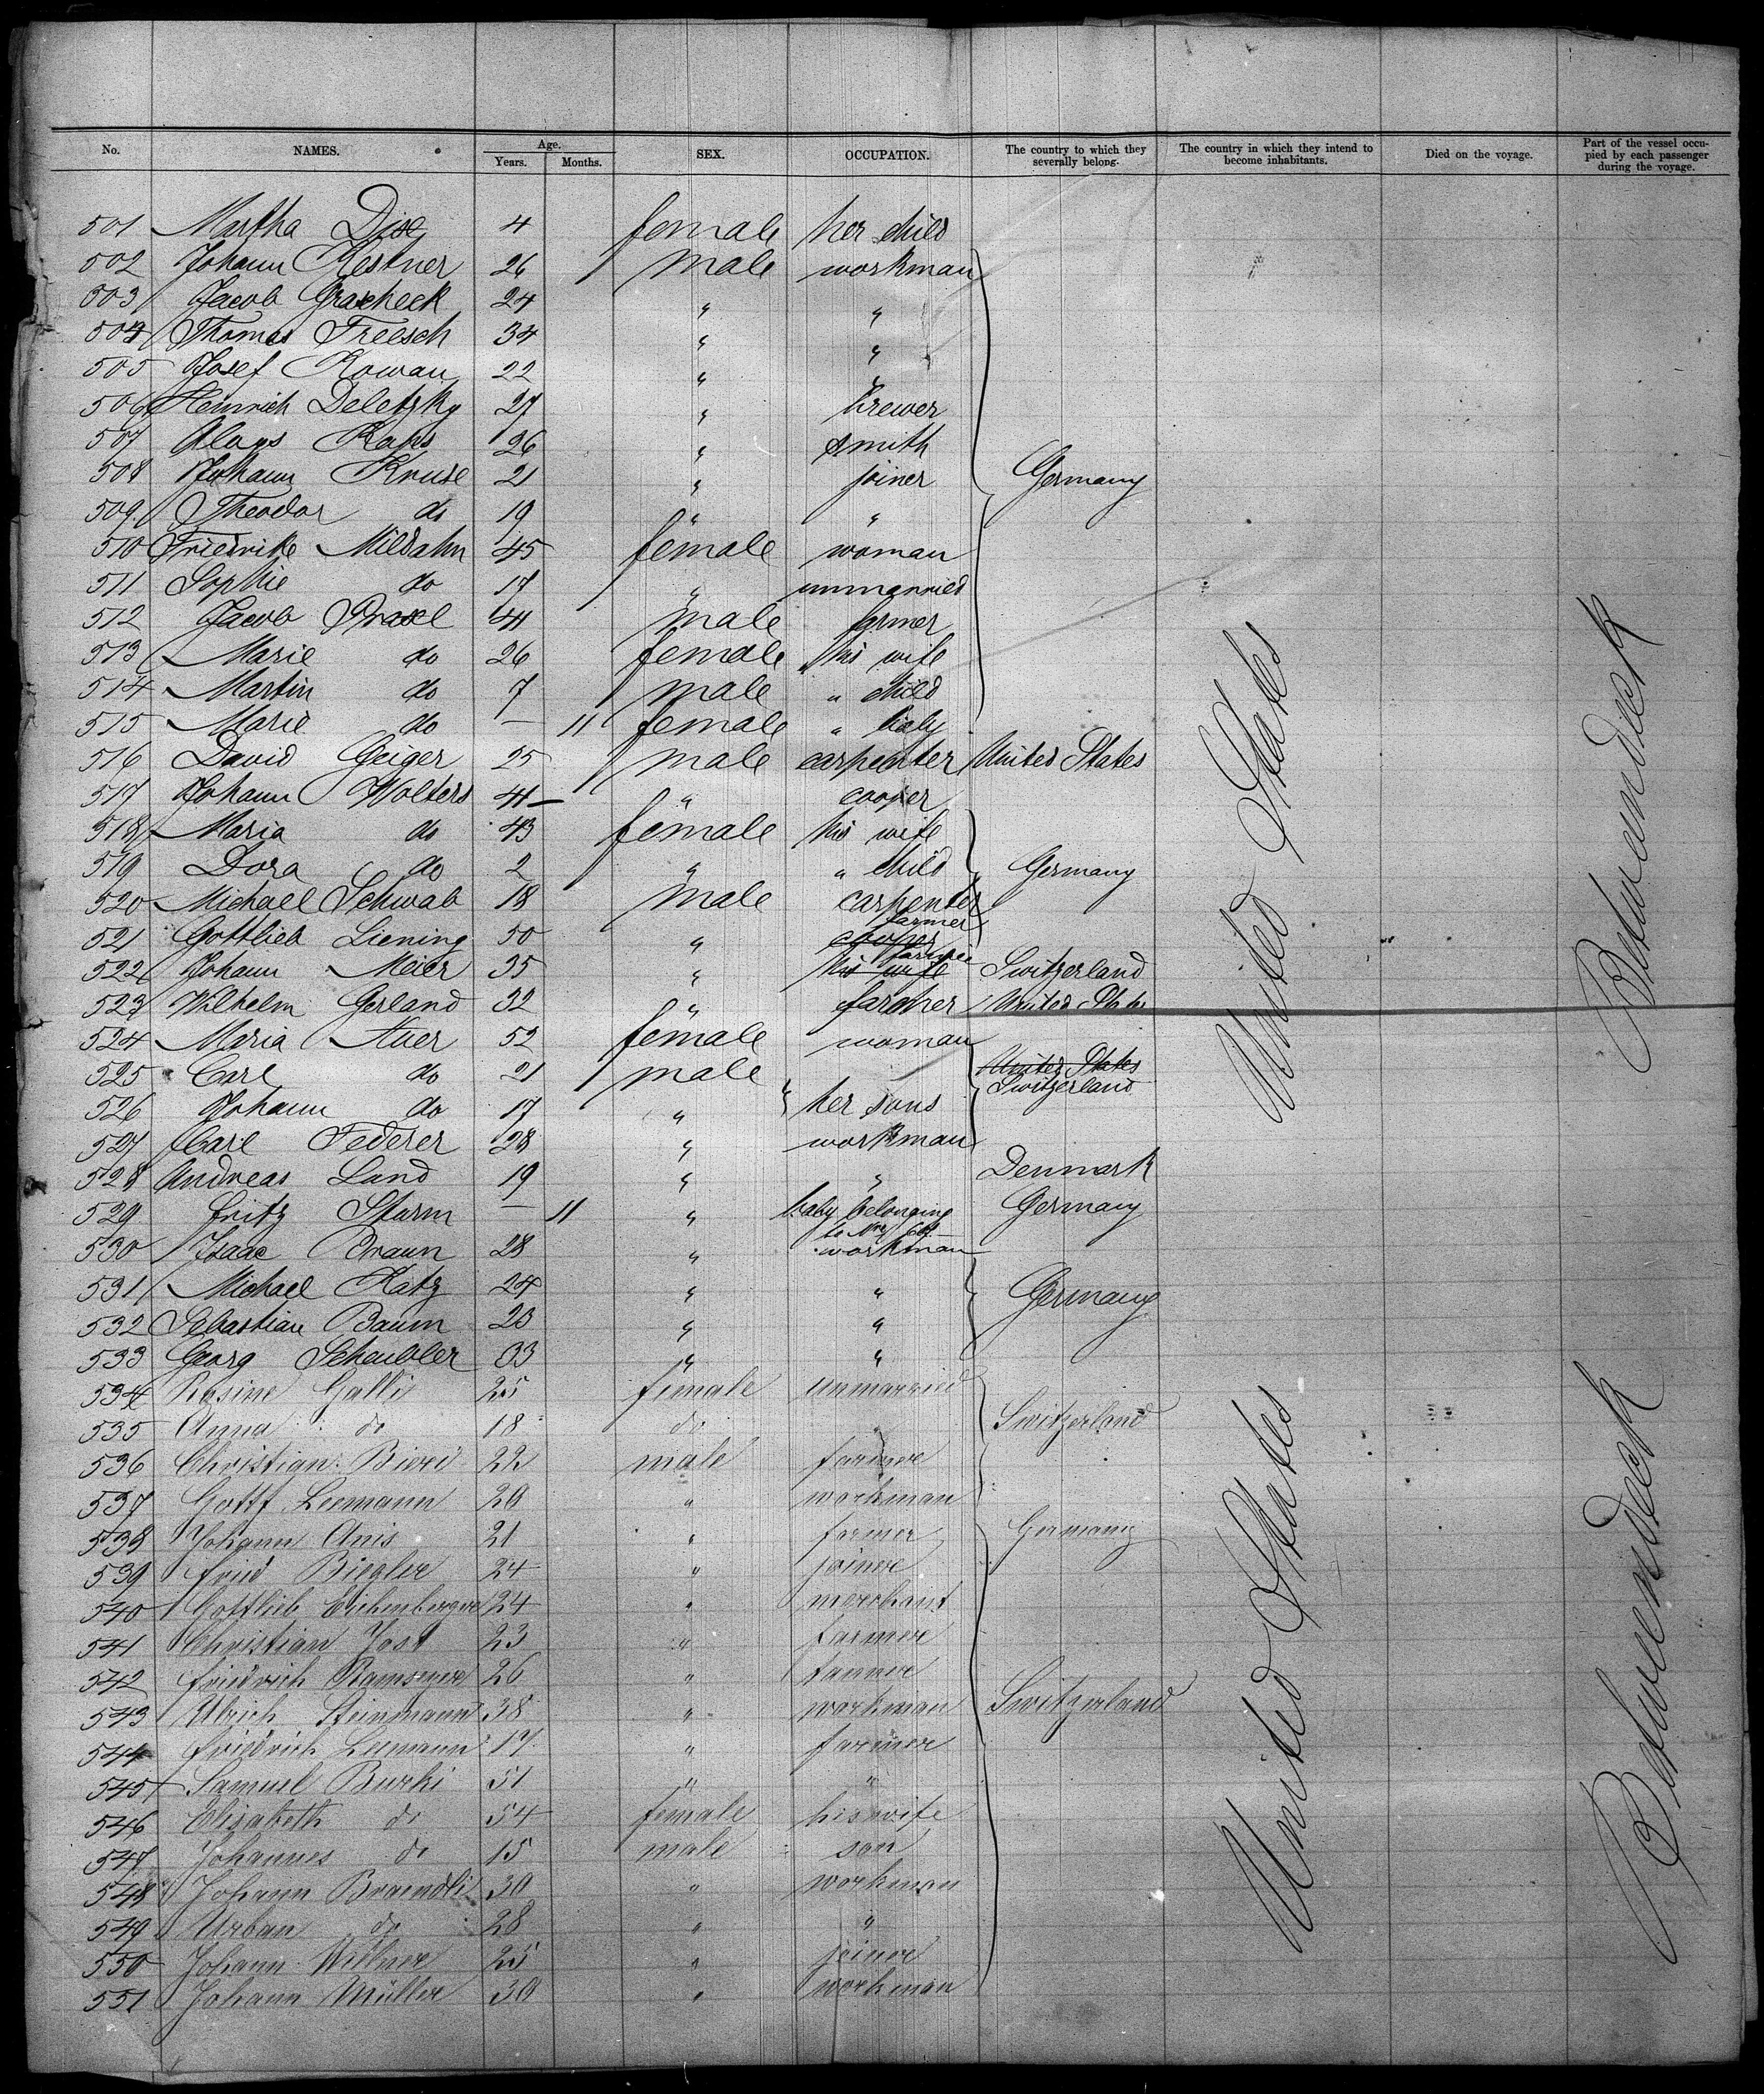 No. NAMES. Age. Years. Months. SEX. OCCUPATION. The country to which they severally belong. The country in which they intend to become inhabitants. Died on the voyage. Part of the vessel occupied by each passenger during the voyage.
501 Martha Dix 4 female her child
502 Johann Kestner 26 male workman
503 Jacob Gracheck 24 " "
504 Thomas Freesch 34 " "
505 Josef Kowan 22 " "
506 Heinrich Deletzky 27 " brewer
507 Aloys Raps 26 " smith
508 Johann Kruse 21 " joiner Germany
509 Theodor do 19 " "
510 Friedrike Mildahn 45 female woman
511 Sophie do 17 " unmarried
512 Jacob Praxel 41 male farmer
513 Marie do 26 female his wife
514 Martin do 7 male " child
515 Marie do — 11 female " baby
516 David Geiger 25 male carpenter United States
517 Johann Wolters 41 — " cooper
518 Maria do 43 female his wife
519 Dora do 2 " " child Germany
520 Michael Schwab 18 male carpenter
521 Gottlieb Liening 50 " cooper farmer
522 Johann Meier 35 " his wife farmer Switzerland
523 Wilhelm Gerland 32 " farmer United States
524 Maria Auer 52 female woman
525 Carl do 21 male United States Switzerland
526 Johann do 17 " her sons
527 Carl Federer 28 " workman
528 Andreas Lund 19 " " Denmark
529 Fritz Sturm — 11 " baby belonging to Germany
530 Isaac Braun 28 " workman
531 Michael Katz 24 " " Germany
532 Sebastian Baum 23 " "
533 Georg Scheubler 33 " "
534 Rosine Galli 25 female unmarried
535 Anna do 18 do " Switzerland
536 Christian Bieri 22 male farmer
537 Gottf Leemann 20 " workman
538 Johann Anis 21 " farmer Germany
539 Fried Biegler 24 " joiner
540 Gottlieb Eichenberger 24 " merchant
541 Christian Jost 23 " farmer
542 Friedrich Ramseyer 26 " tanner
543 Ulrich Steinmann 38 " workman Switzerland
544 Friedrich Leemann 17 " farmer
545 Samuel Burki 51 " "
546 Elisabeth do 54 female his wife
547 Johannes do 15 male son
548 Johann Braendli 30 " workman
549 Urban do 28 " "
550 Johann Willner 25 " joiner
551 Johann Müller 30 " workman
United States
Betweendeck
United States
Betweendeck